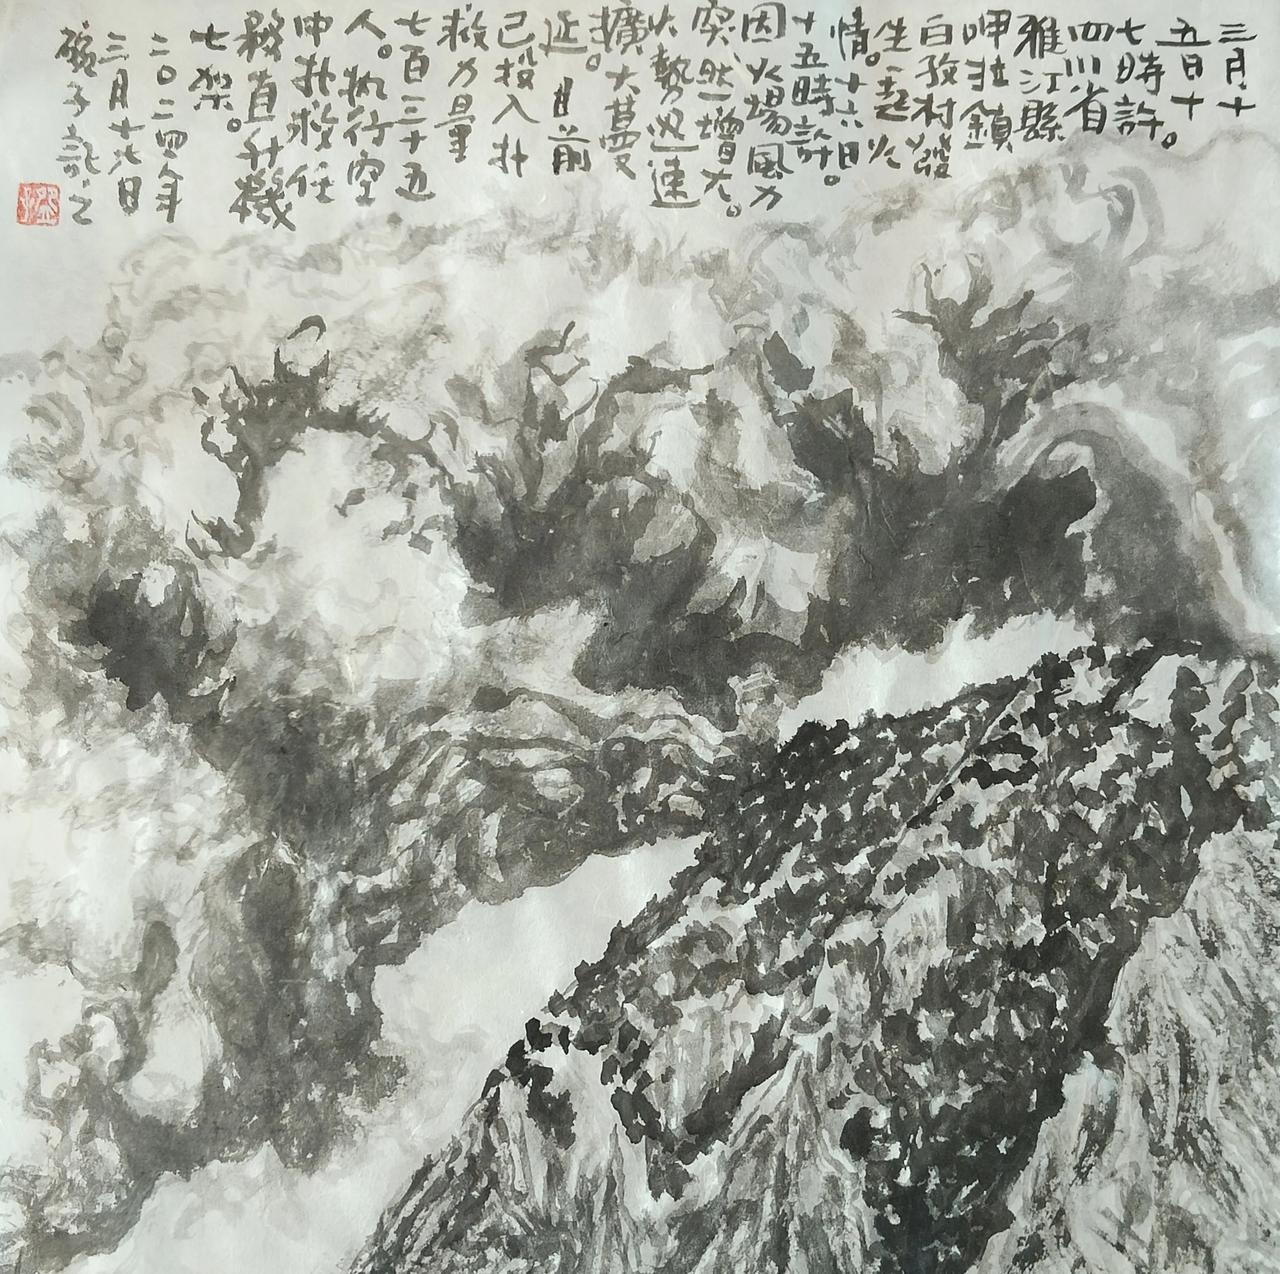 三月十
五日十
七時許。
四川省
雅江縣
呷拉鎮
白孜村發
生一起火
情。十六日
十五時許。
因火場風力
突然增大。
火勢迅速
擴大蔓
延。目前
已投入扑
救力量
七百三十五
人。执行空
中扑救任
務直升機
七架。
二〇二四年
三月十六日
記之